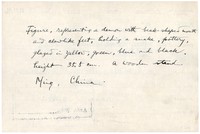 Figure, representing a demon with beak shaped mouth
and clawlike feet, holding a snake, pottery,
glazed in yellow, green, blue and black,
height 38.8 cm. A wooden stand.
Ming, China.